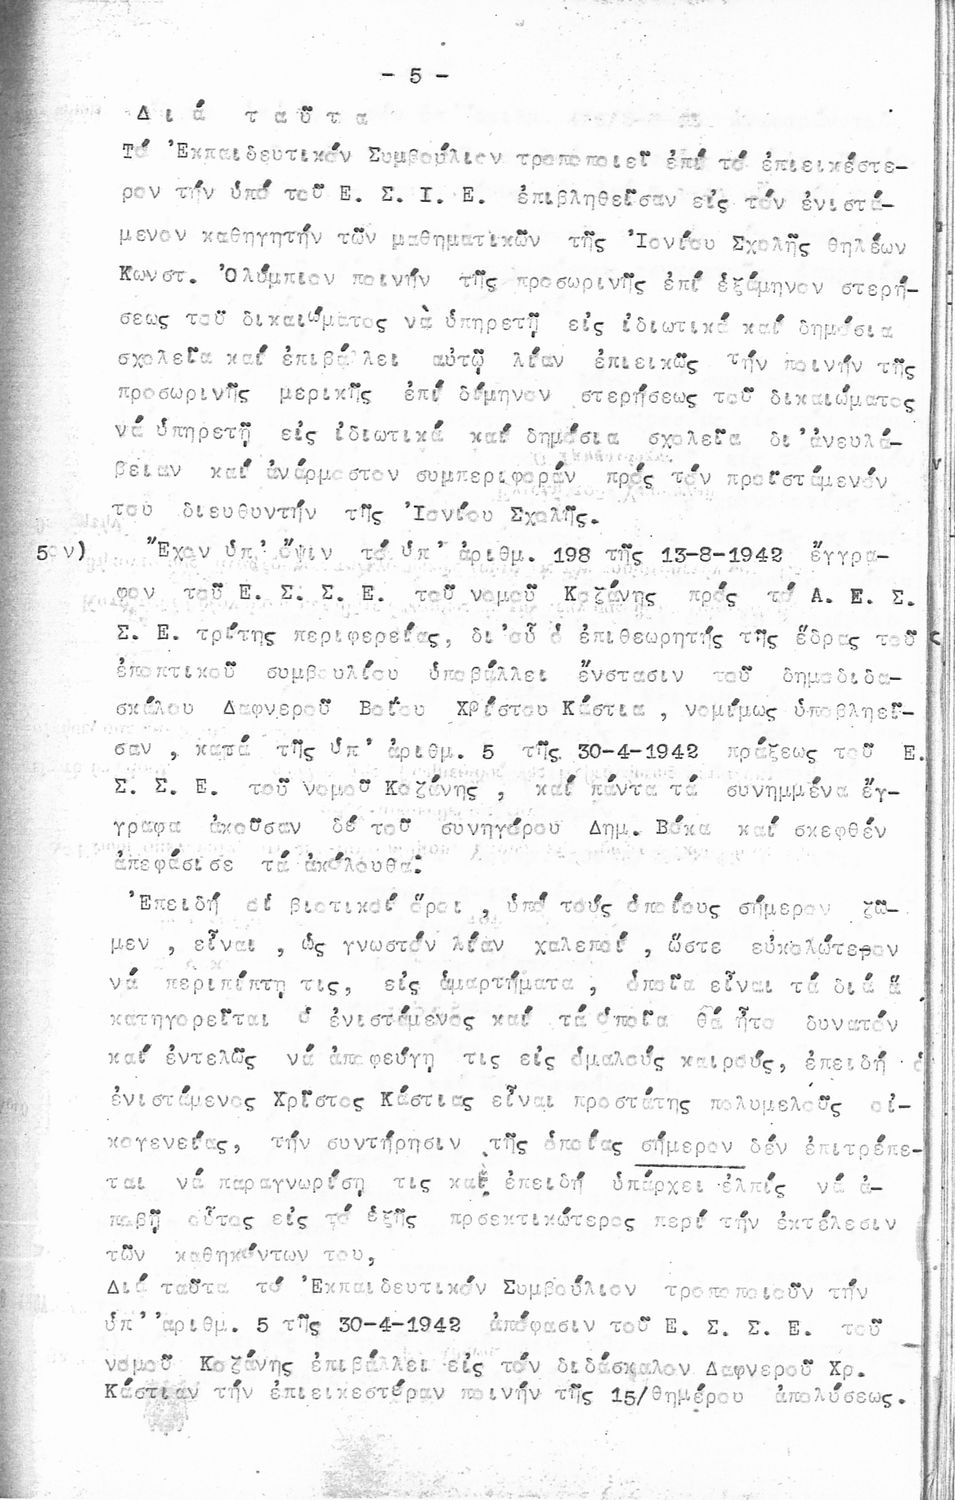 - 5 -
Δ ι ά   τ α ῦ τ α
Τό Ἐκπαιδευτικόν Συμβούλιον τροποποιεῖ ἐπί τό ἐπιεικέστε-
ρον τήν ὑπό τοῦ Ε. Σ. Ι. Ε. ἐπιβληθεῖσαν εἰς τόν ἐνιστά-
μενον καθηγητήν τῶν μαθηματικῶν τῆς Ἰονίου Σχολῆς θηλέων
Κωνστ. Ὀλύμπιον ποινήν τῆς προσωρινῆς ἐπί ἑξάμηνον στερή-
σεως τοῦ δικαιώματος νὰ ὑπηρετῇ εἰς ἰδιωτικά καί δημόσια
σχολεῖα καί ἐπιβάλλει αὐτῷ λίαν ἐπιεικῶς τήν ποινήν τῆς
προσωρινῆς μερικῆς ἐπί δίμηνον στερήσεως τοῦ δικαιώματος
νά ὑπηρετῇ εἰς ἰδιωτικά καί δημόσια σχολεῖα δι'ἀνευλά-
βειαν καί ἀνάρμοστον συμπεριφοράν πρός τόν προϊστάμενόν
του διευθυντήν τῆς Ἰονίου Σχολῆς.
5ον) Ἔχον ὑπ' ὄψιν τό ὑπ' ἀριθμ. 198 τῆς 13-8-1942 ἔγγρα-
φον τοῦ Ε. Σ. Σ. Ε. τοῦ νομοῦ Κοζάνης πρός τό Α. Ε. Σ.
Σ. Ε. τρίτης περιφερείας, δι'οὗ ὁ ἐπιθεωρητής τῆς ἕδρας τοῦ
ἐποπτικοῦ συμβουλίου ὑποβάλλει ἔνστασιν τοῦ δημοδιδα-
σκάλου Δαφνεροῦ Βοΐου Χρίστου Κάστια , νομίμως ὑποβληεῖ-
σαν , κατά τῆς ὑπ' ἀριθμ. 5 τῆς 30-4-1942 πράξεως τοῦ Ε.
Σ. Σ. Ε. τοῦ νομοῦ Κοζάνης , καί πάντα τά συνημμένα ἔγ-
γραφα ἀκοῦσαν δέ τοῦ συνηγόρου Δημ. Βόκα καί σκεφθέν
ἀπεφάσισε τά ἀκόλουθα:
Ἐπειδή οἱ βιοτικοί ὅροι , ὑπό τούς ὁποίους σήμερον ζῶ-
μεν , εἶναι , ὡς γνωστόν λίαν χαλεποί , ὥστε εὐκολώτερον
νά περιπίπτῃ τις, εἰς ἁμαρτήματα , ὁποῖα εἶναι τά διά ἅ
κατηγορεῖται ὁ ἐνιστάμενος καί τά ὁποῖα θά ἦτο δυνατόν
καί ἐντελῶς νά ἀποφεύγῃ τις εἰς ὁμαλούς καιρούς, ἐπειδή ὁ
ἐνιστάμενος Χρῖστος Κάστιας εἶναι προστάτης πολυμελοῦς οἰ-
κογενείας, τήν συντήρησιν τῆς ὁποίας σήμερον δέν ἐπιτρέπε-
ται νά παραγνωρίσῃ τις καί ἐπειδή ὑπάρχει ἐλπίς νά ἀ-
ποβῇ οὗτος εἰς τό ἑξῆς προσεκτικώτερος περί τήν ἐκτέλεσιν
τῶν καθηκόντων του,
Διά ταῦτα τό Ἐκπαιδευτικόν Συμβούλιον τροποποιοῦν τήν
ὑπ' ἀριθμ. 5 τῆς 30-4-1942 ἀπόφασιν τοῦ Ε. Σ. Σ. Ε. τοῦ
νομοῦ Κοζάνης ἐπιβάλλει εἰς τόν διδάσκαλον Δαφνεροῦ Χρ.
Κάστιαν τήν ἐπιεικεστέραν ποινήν τῆς 15/θημέρου ἀπολύσεως.